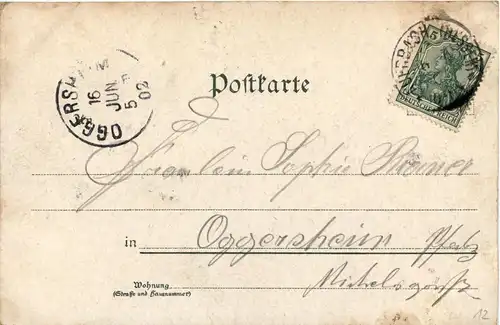 OGGERSH
16
JUN
5
02
Postkarte
DEUTSCHES REICH
Fräulein Sophie Römer
in Oggersheim Pfalz
Wohnung
(Straße und Hausnummer)
12